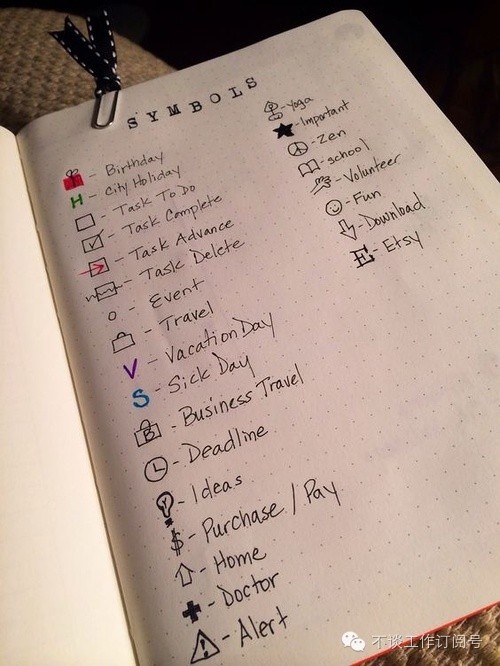 SYMBOLS
- Birthday
H - City Holiday
- Task To Do
- Task Complete
- Task Advance
- Task Delete
- Event
- Travel
V - Vacation Day
S - Sick Day
B - Business Travel
- Deadline
- Ideas
$ - Purchase / Pay
- Home
- Doctor
! - Alert
- Yoga
- Important
- Zen
- school
- Volunteer
- Fun
- Download
E - Etsy
不谈工作订阅号